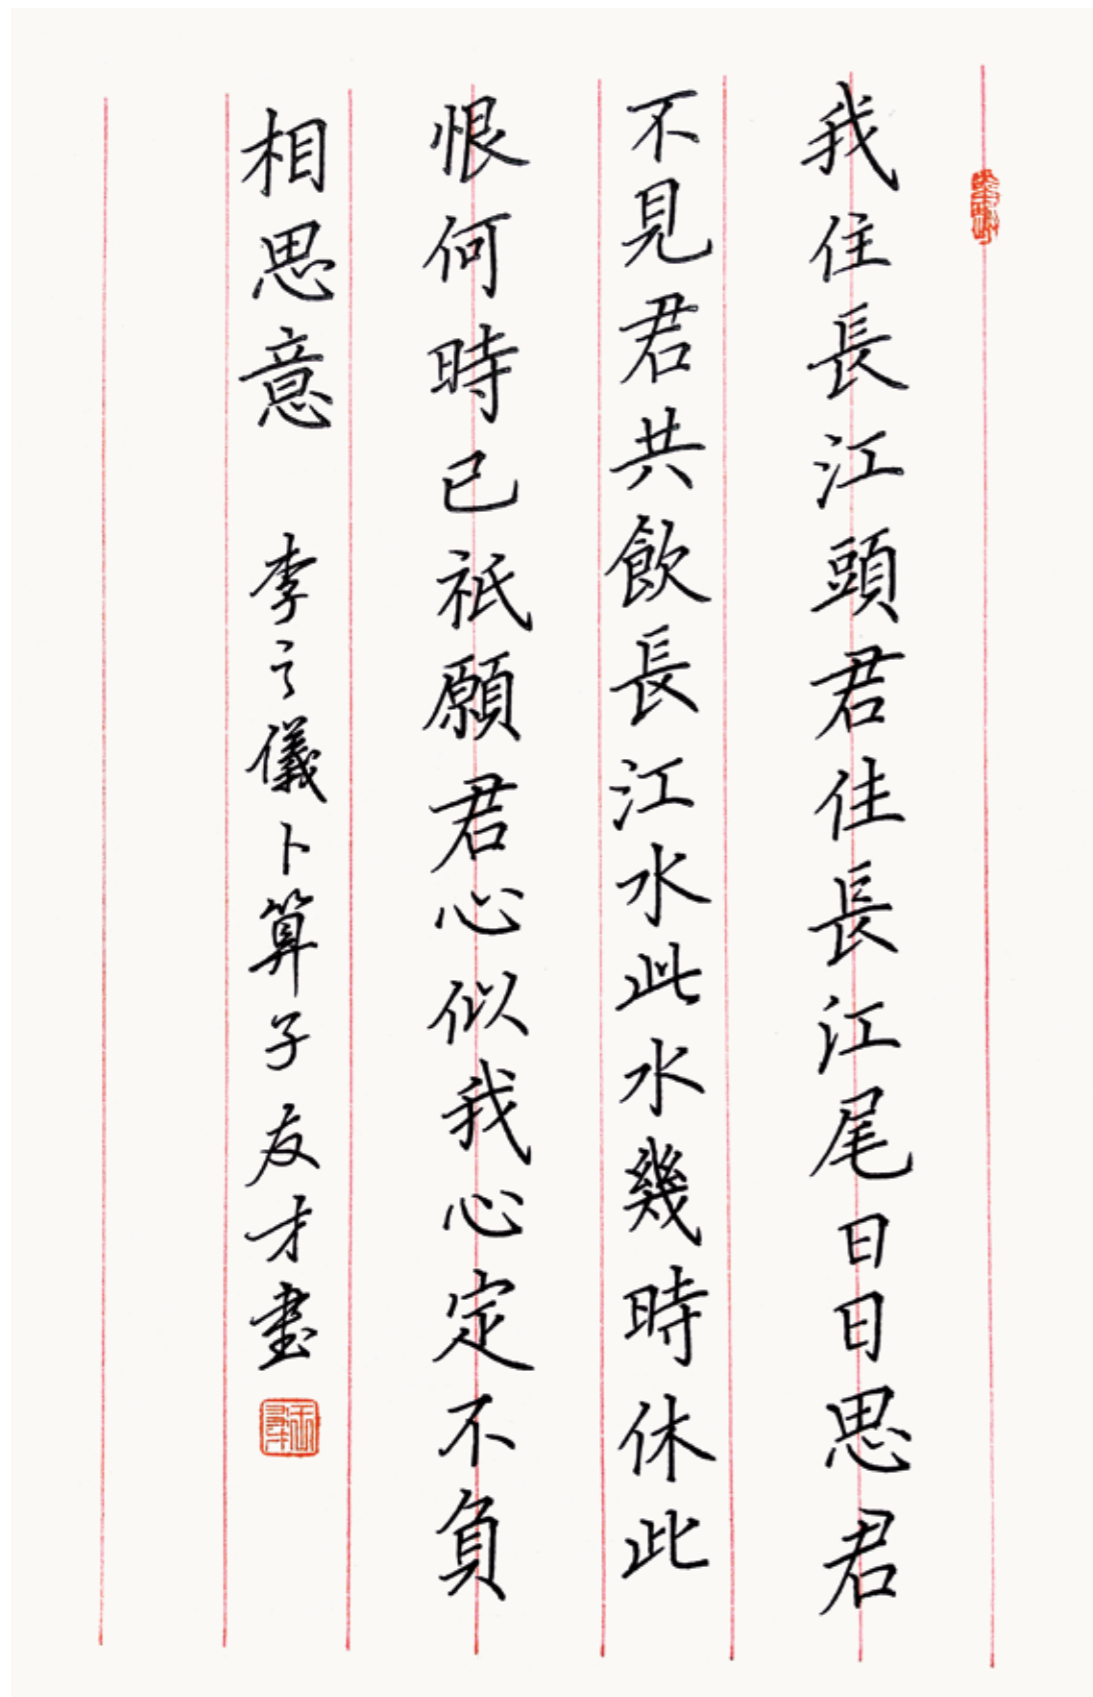 我住長江頭君住長江尾日日思君
不見君共飲長江水此水幾時休此
恨何時已祇願君心似我心定不負
相思意 李之儀卜算子 友才書